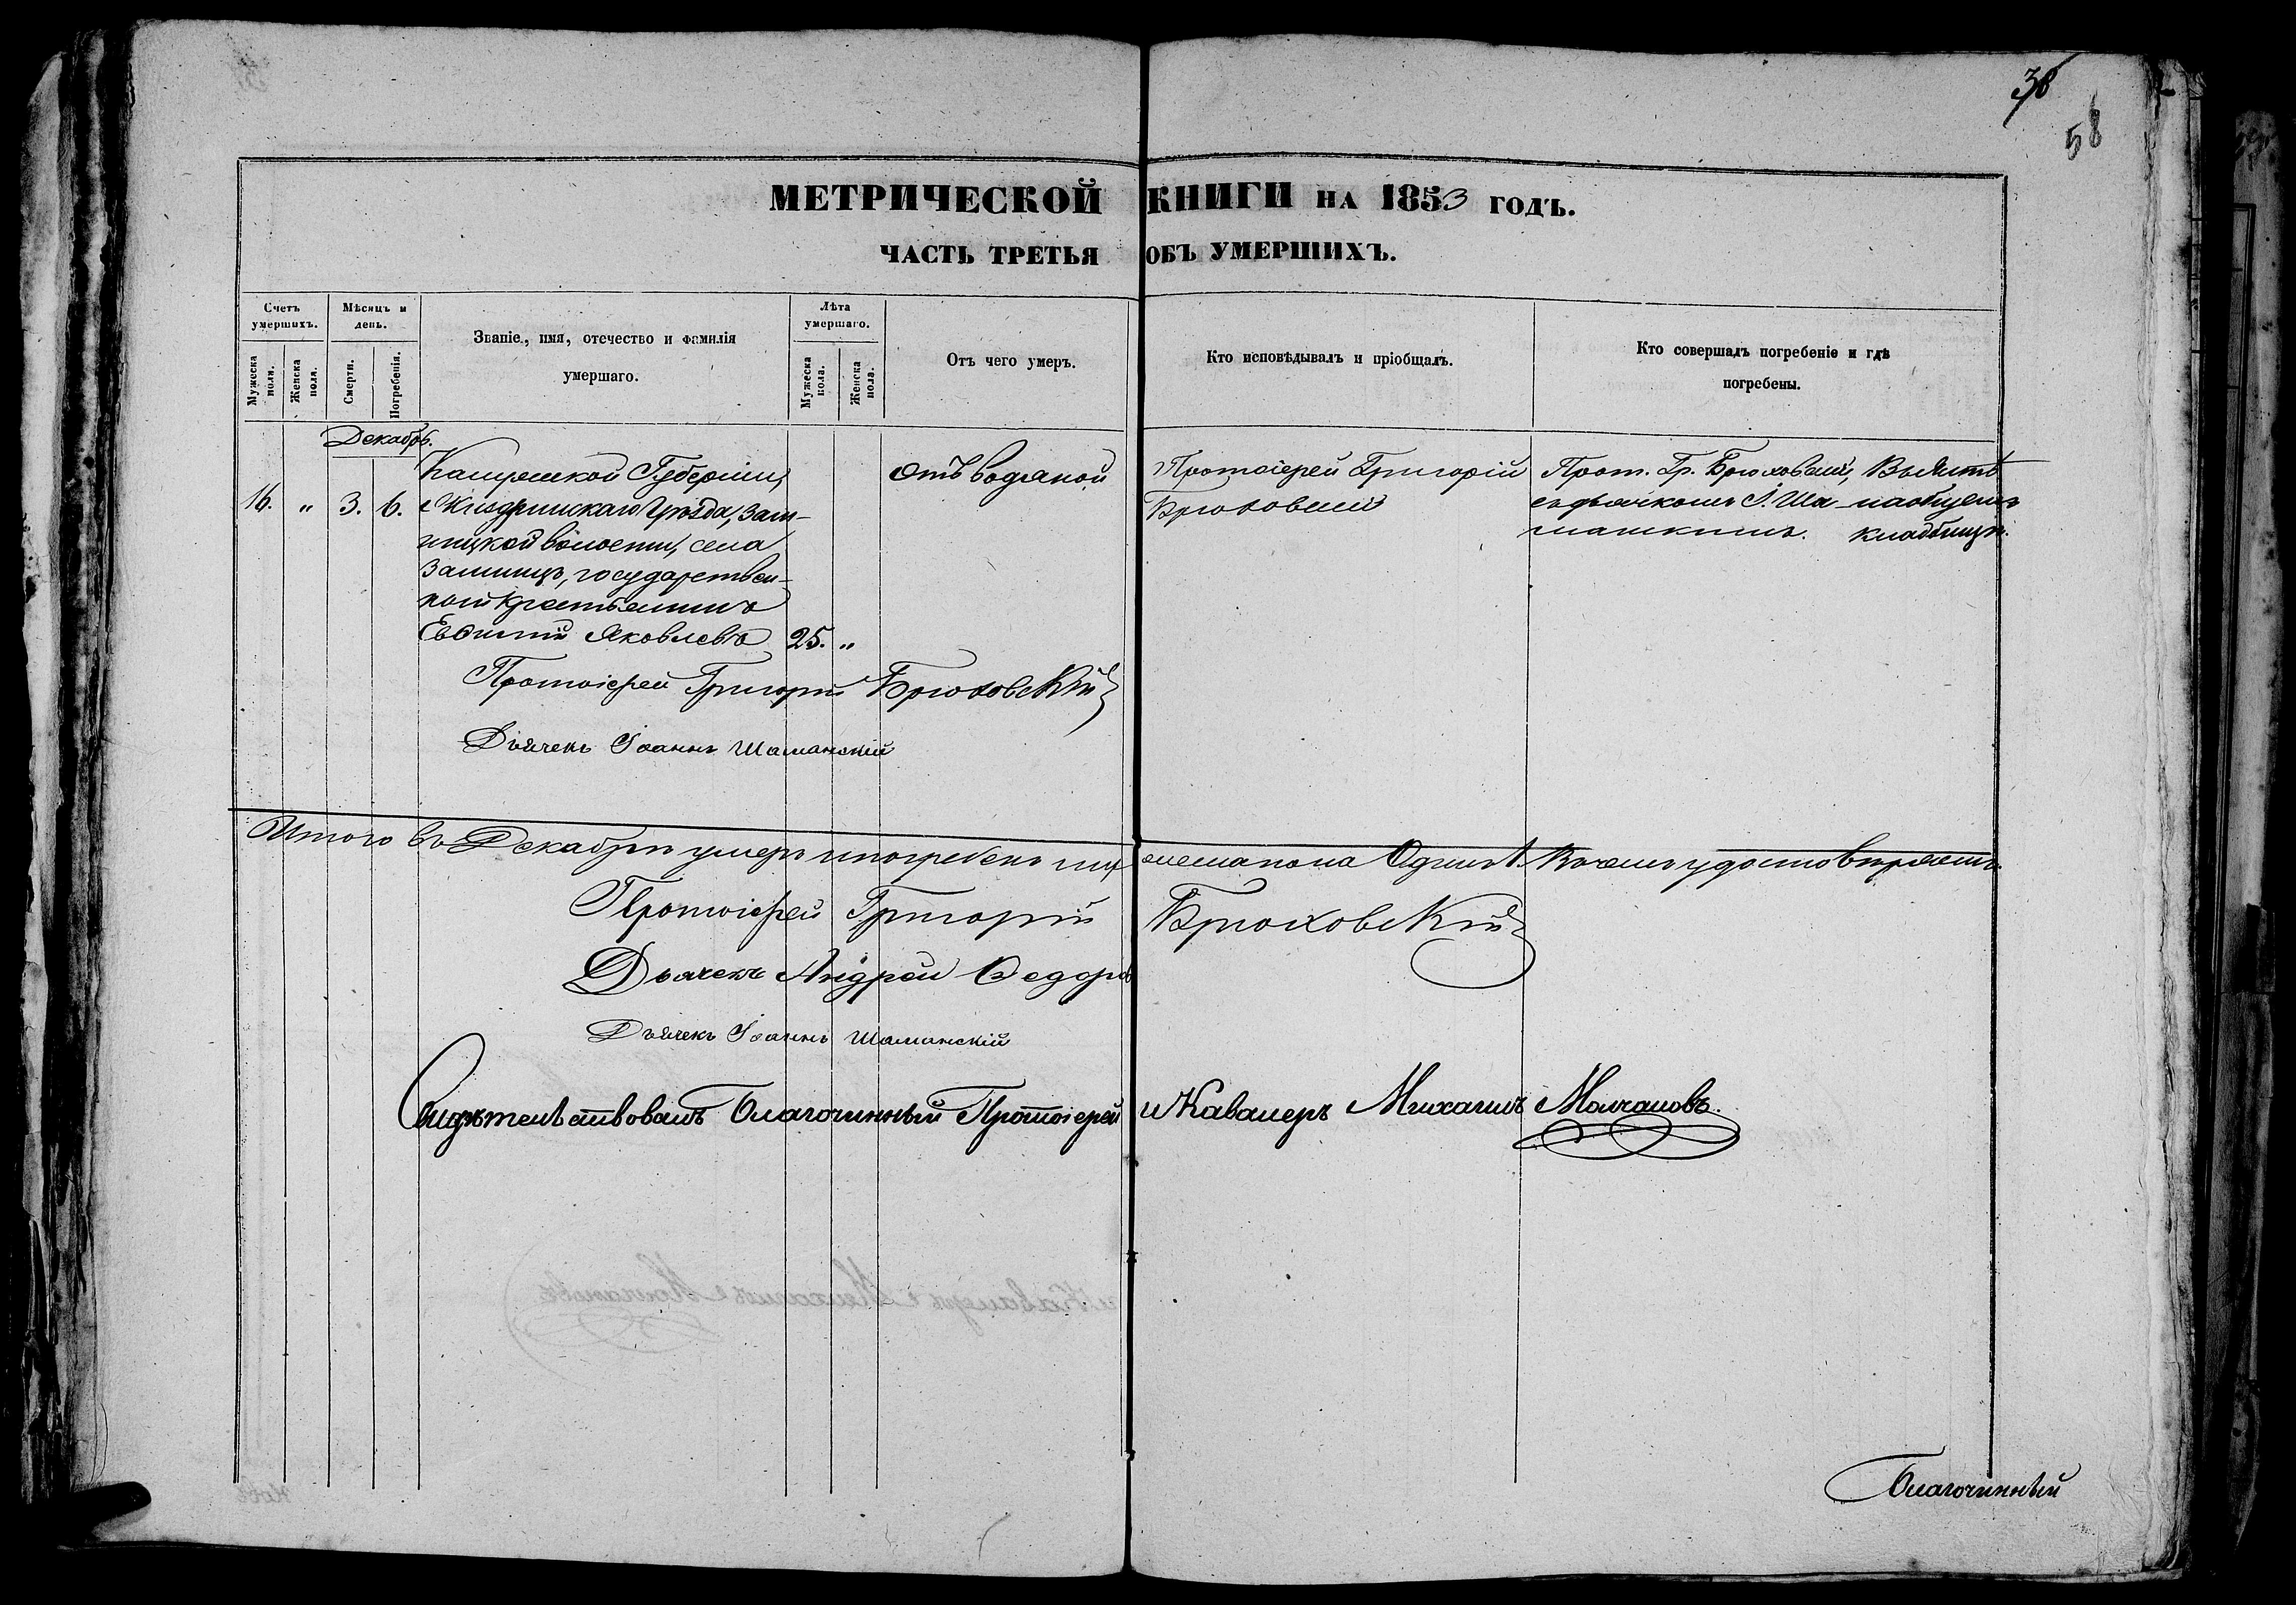 38
58
МЕТРИЧЕСКОЙ КНИГИ НА 1853 ГОДЪ.
ЧАСТЬ ТРЕТЬЯ ОБЪ УМЕРШИХЪ.
Счетъ умершихъ.
Мужеска пола.
Женска пола.
Мѣсяцъ и день.
Смерти.
Погребенія.
Званіе, имя, отечество и фамилія умершаго.
Лѣта умершаго.
Мужеска пола.
Женска пола.
Отъ чего умеръ.
Кто исповѣдывалъ и пріобщалъ.
Кто совершалъ погребеніе и гдѣ погребены.
Декабрь.
Калужской Губерніи,
16. „ 3. 6. Жиздринскаго Уѣзда,
волости, села
государствен-
ной крестьянинъ
Евѳимій Яковлевъ 25. „
отъ водяной
Протоіерей Григорій
Брюховскій
Прот. Гр. Брюховскій,
съ дьячкомъ І. Ша- на общемъ
кладбищѣ.
Протоіерей Григорій Брюховскій
Дьячекъ Іоаннъ Шаманскій
Итого въ Декабрѣ умеръ и погребенъ мужеска пола Одинъ 1. Въ чемъ удостовѣряемъ.
Протоіерей Григорій Брюховскій
Дьячекъ Андрей Ѳедоровъ
Дьячекъ Іоаннъ Шаманскій
Свидѣтельствовалъ Благочинный Протоіерей и Кавалеръ Михаилъ Молчановъ.
Благочинный